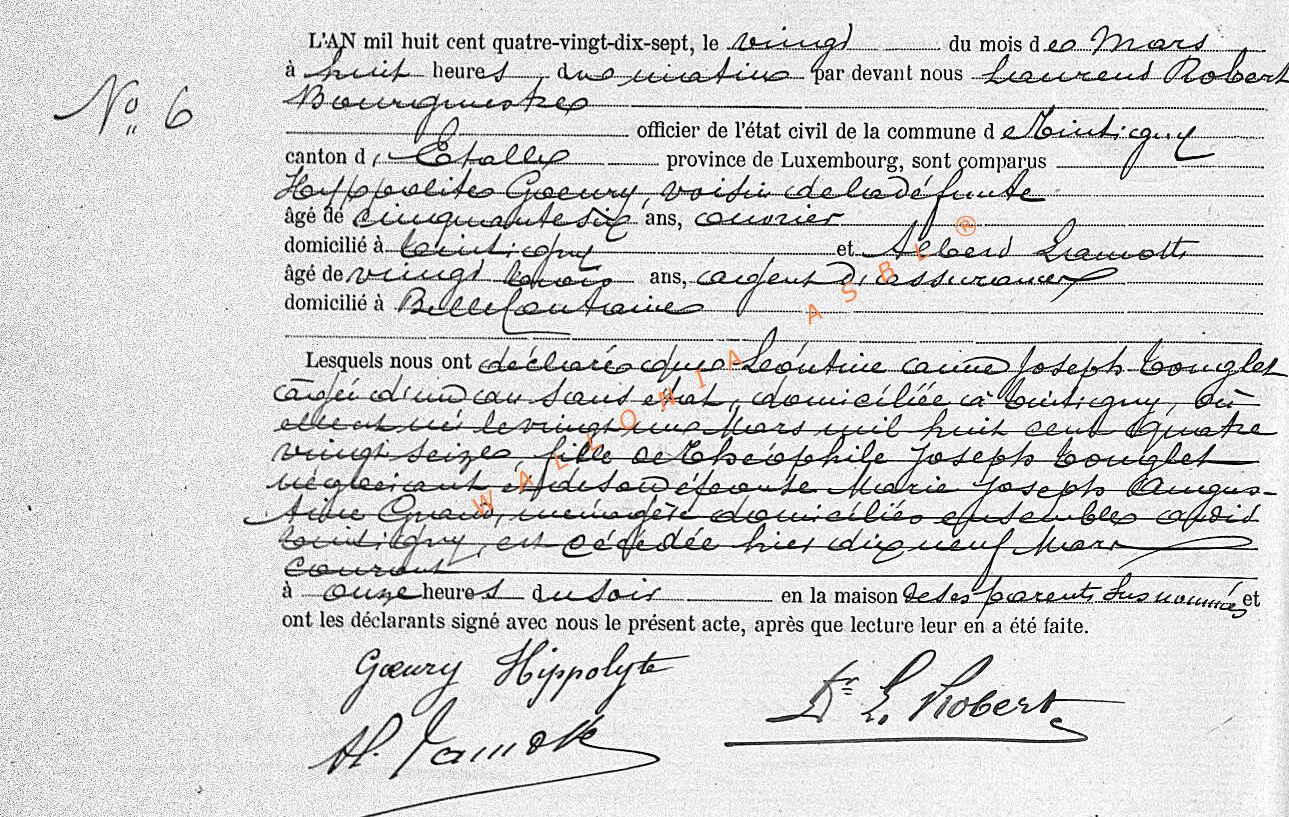 L'AN mil huit cent quatre-vingt-dix-sept, le vingt du mois de Mars
à huit heures du matin par devant nous Laurent Robert
N° 6
Bourgmestre
officier de l'état civil de la commune de Tintigny
canton d'Etalle province de Luxembourg, sont comparus
Hyppolite Gœury, voisin de la défunte
âgé de cinquante six ans, ouvrier
domicilié à Tintigny et Albert Lamotte
âgé de vingt trois ans, agent d'assurances
domicilié à Bellefontaine
Lesquels nous ont déclaré que Léontine Joseph Touglet
âgée d'un an sans état, domiciliée à Tintigny, où
elle est née le vingt un Mars mil huit cent quatre
vingt seize, fille de Théophile Joseph Touglet
négociant et de son épouse Marie Joseph Augus-
tine, ménagère domiciliés ensembles audit
Tintigny, est décédée hier dix neuf Mars
courant
à onze heures du soir en la maison de ses parents susnommés et
ont les déclarants signé avec nous le présent acte, après que lecture leur en a été faite.
Gœury Hippolyte
Dr L. Robert
Al. Lamotte
WALLONIA ASBL ®